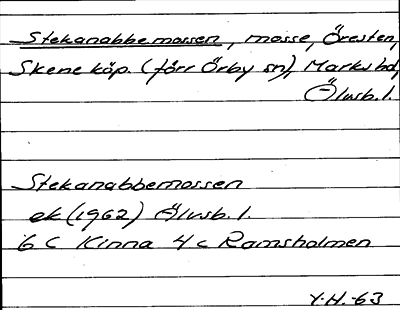 Stekanabbemossen, mosse, Öresten,
Skene köp. (förr Örby sn), Marks hd,
Älvsb. l.
Stekanabbemossen
ek (1962) Älvsb. l.
6 C Kinna 4 c Ramsholmen
Y.H.-63